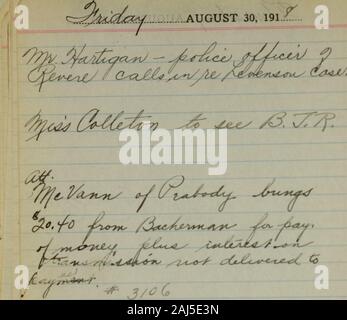 Friday AUGUST 30, 1918
Mr. Hartigan - police officer of
Revere calls in re Levenson Case.
Miss Colleton to see B. J. R.
Att.
McVann of Peabody brings
$20.40 from Backerman for pay.
of money plus interest on
transmission not delivered to
# 3106
alamy
www.alamy.com
Image ID: 2AJ5E3N